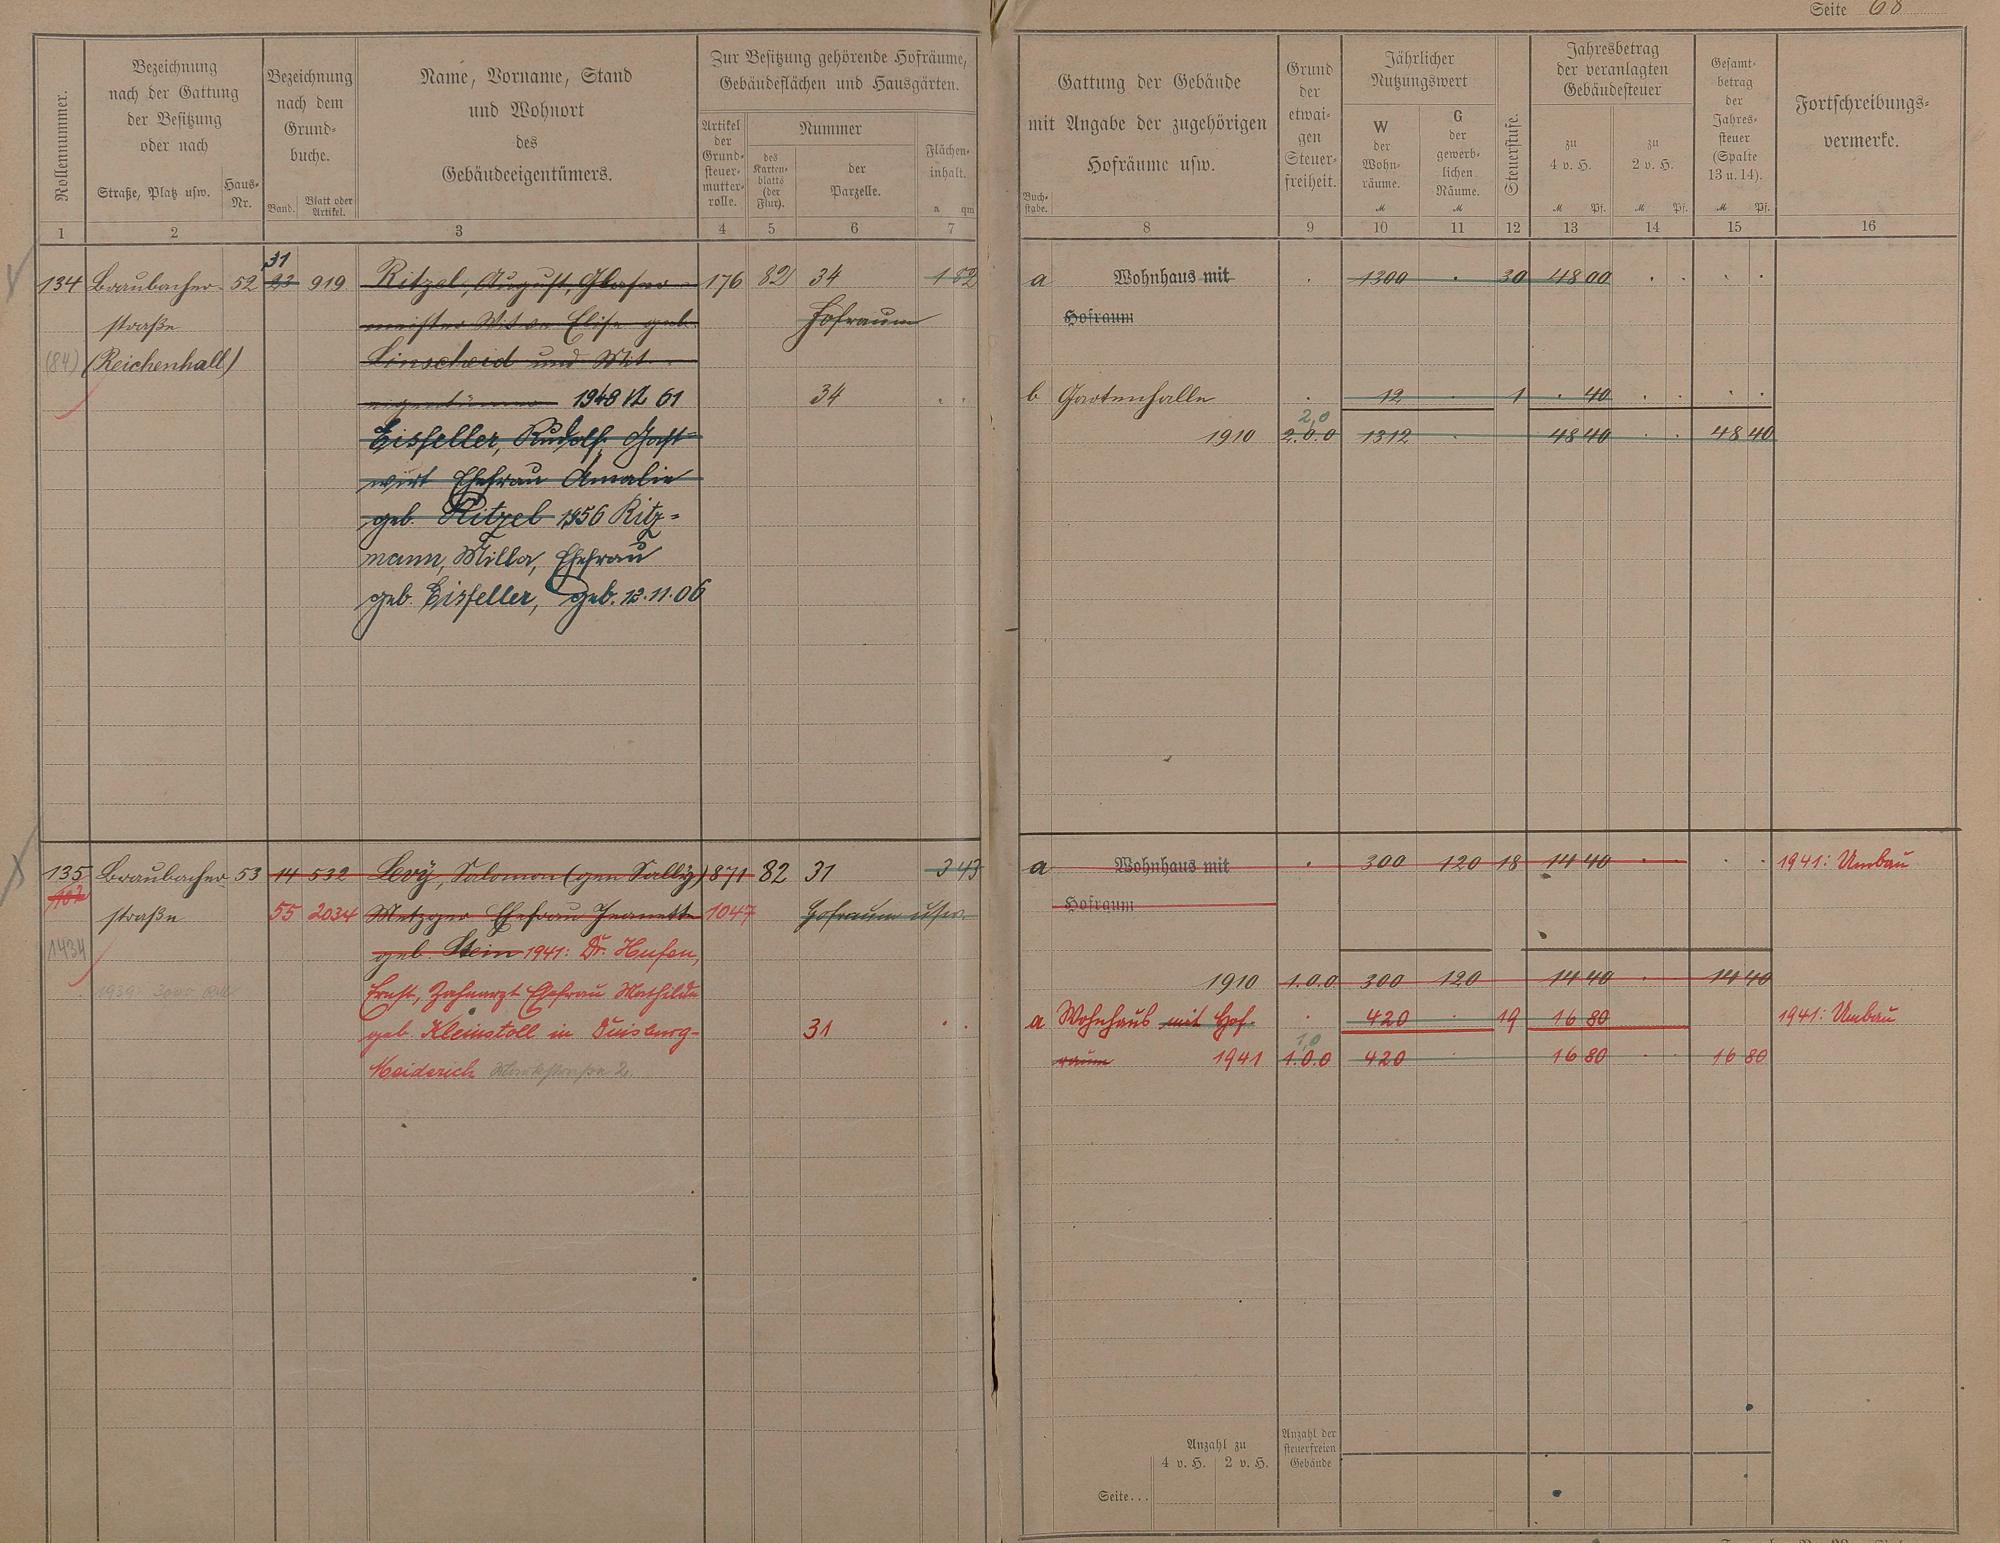 Seite 68
Rollennummer.
Bezeichnung
nach der Gattung
der Besitzung
oder nach
Straße, Platz usw.
Haus-
Nr.
Bezeichnung
nach dem
Grund-
buche.
Band.
Blatt oder
Artikel.
Name, Vorname, Stand
und Wohnort
des
Gebäudeeigentümers.
Zur Besitzung gehörende Hofräume,
Gebäudeflächen und Hausgärten.
Artikel
der
Grund-
steuer-
mutter-
rolle.
Nummer
des
Karten-
blatts
(der
Flur).
der
Parzelle.
Flächen-
inhalt.
a qm
1 2 3 4 5 6 7
Buch-
stabe.
Gattung der Gebäude
mit Angabe der zugehörigen
Hofräume usw.
Grund
der
etwai-
gen
Steuer-
freiheit.
Jährlicher
Nutzungswert
W
der
Wohn-
räume.
M
G
der
gewerb-
lichen
Räume.
M
Steuerstufe.
Jahresbetrag
der veranlagten
Gebäudesteuer
zu
4 v. H.
M Pf.
zu
2 v. H.
M Pf.
Gesamt-
betrag
der
Jahres-
steuer
(Spalte
13 u. 14).
M Pf.
Fortschreibungs-
vermerke.
8 9 10 11 12 13 14 15 16
31
134 Braubacher- 52 23 919 Ritzel, August, Glaser- 176 82 34 1 82
straße meister Witwe Elise geb. Hofraum
(84) (Reichenhall) Linscheid und Mit-
eigentümer 1948 N 61 34
Eisfeller, Rudolf, Gast-
wirt Ehefrau Amalie
geb. Ritzel 1956 Ritz-
mann, Milla, Ehefrau
geb. Eisfeller, geb. 12.11.06
a Wohnhaus mit 1300 30 48 00
Hofraum
b Gartenhalle 12 1 40
2,0
1910 2.0.0 1312 48 40 48 40
135 Braubacher- 53 14 532 Levÿ, Salomon (gen Sally) 871 82 31 3 43
straße 55 2034 Metzger Ehefrau Jeanette 1047 Hofraum usw.
1434 geb. Stein 1941: Dr. Hufen,
Ernst, Zahnarzt Ehefrau Mathilde
geb. Kleinstoll in Duisburg- 31
Meiderich
1939: 3000
a Wohnhaus mit 300 120 18 14 40 1941: Umbau
Hofraum
1910 1.0.0 300 120 14 40 14 40
a Wohnhaus mit Hof- 420 19 16 80 1941: Umbau
1,0
raum 1941 1.0.0 420 16 80 16 80
Anzahl zu
4 v. H. 2 v. H.
Anzahl der
steuerfreien
Gebäude
Seite...